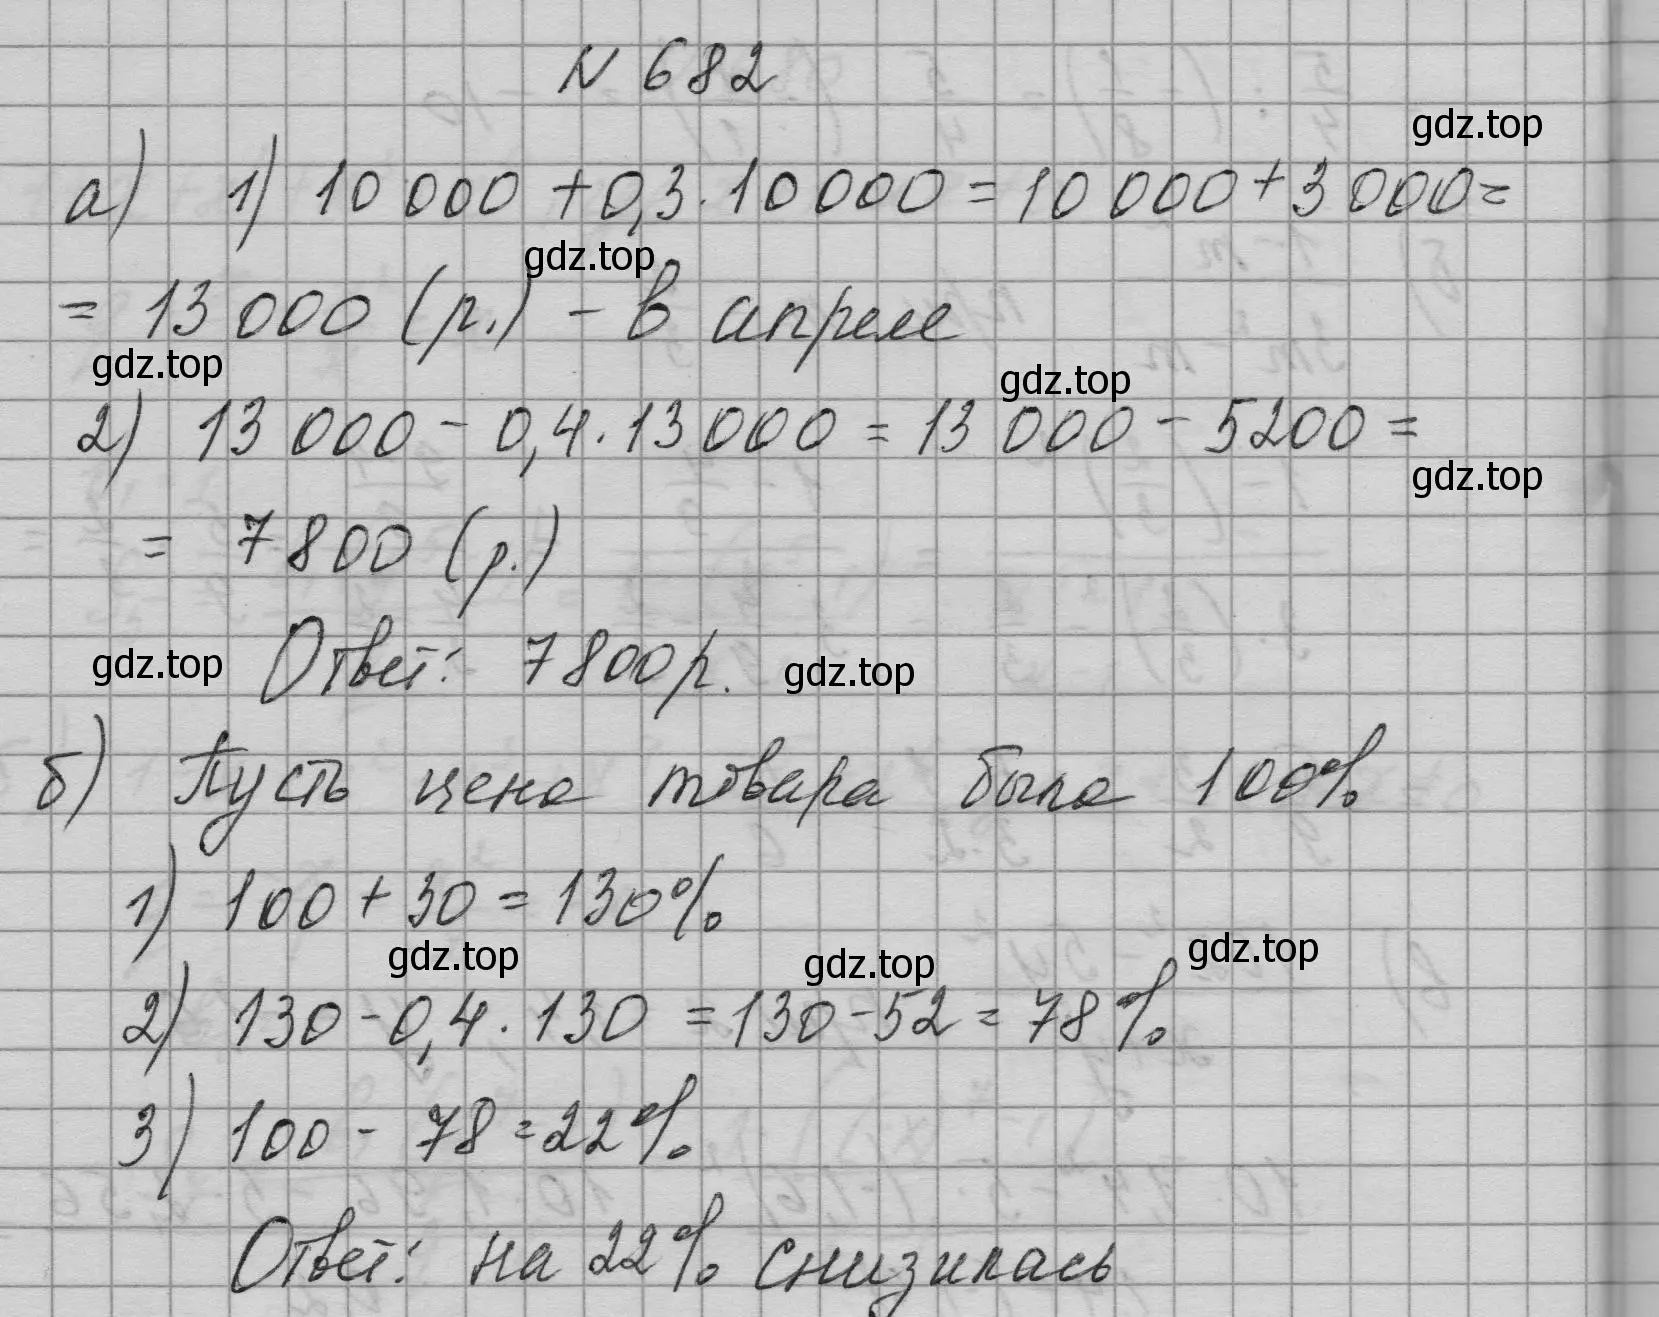 N 682
gdz.top
а) 1) 10 000 + 0,3 · 10 000 = 10 000 + 3 000 =
gdz.top
= 13 000 (р.) - в апреле
gdz.top
gdz.top
2) 13 000 - 0,4 · 13 000 = 13 000 - 5200 =
gdz.top
= 7 800 (р.)
Ответ: 7 800 р.
gdz.top
gdz.top
б) Пусть цена товара была 100%
1) 100 + 30 = 130%
gdz.top
gdz.top
gdz.top
2) 130 - 0,4 · 130 = 130 - 52 = 78%
3) 100 - 78 = 22%
Ответ: на 22% снизилась